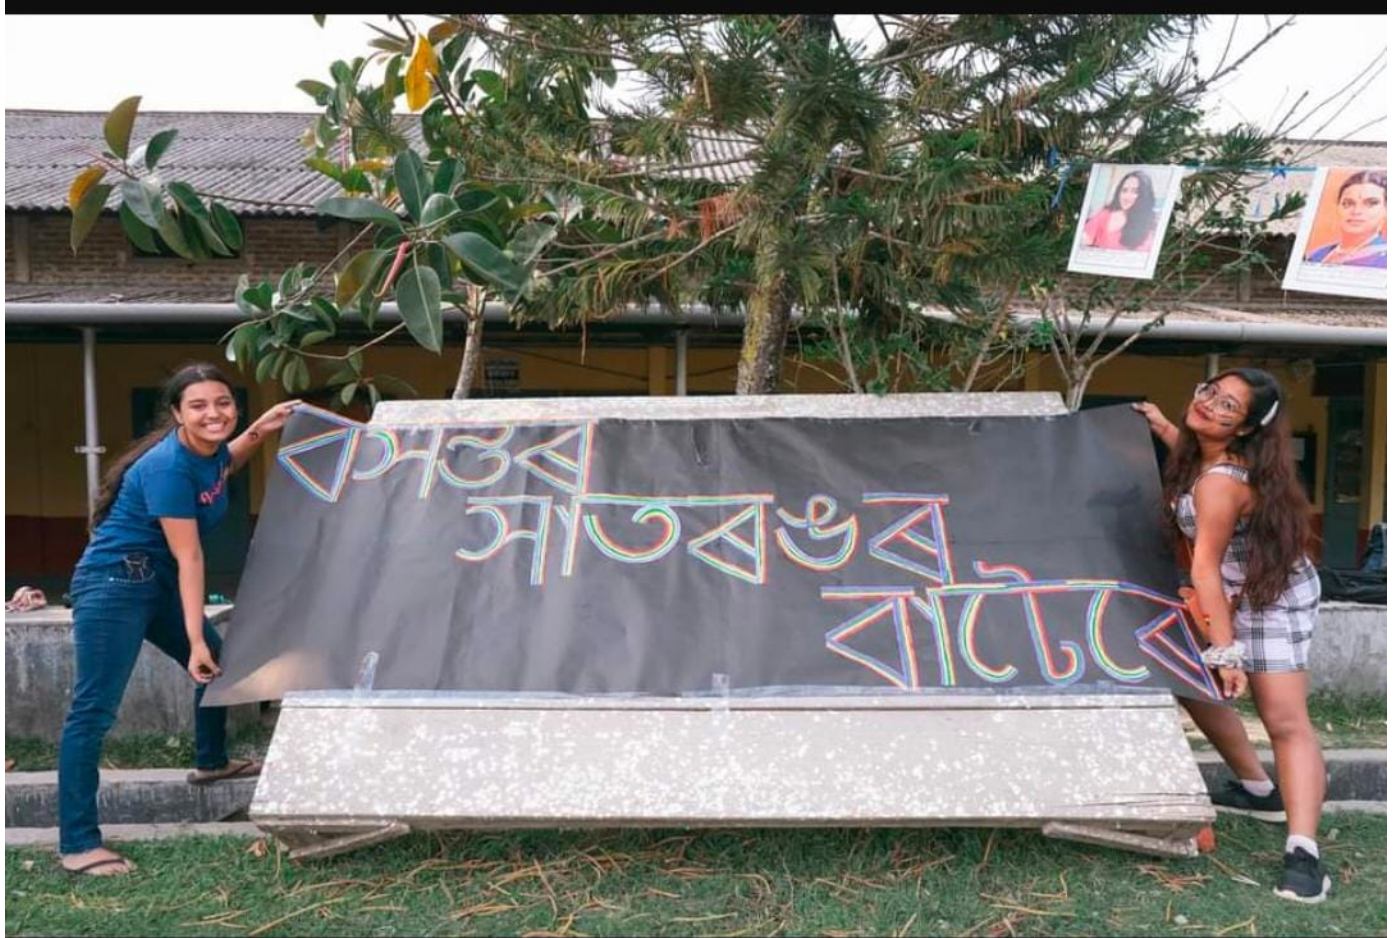 বসন্তৰ
সাতৰঙৰ
বাটেৰে